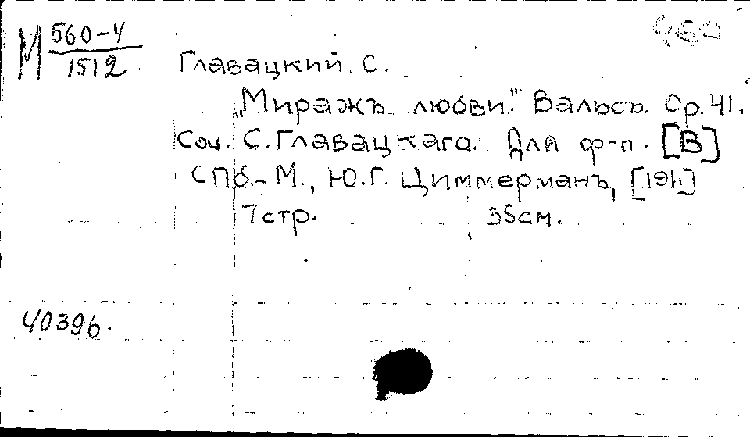 М 560-4
1512
Главацкий. С.
„Миражъ любви." Вальсъ. Ор. 41.
Соч. С. Главацкаго. Для ф-п. [В]
СПб.-М., Ю.Г. Циммерманъ,
7 стр. 35 см.
40396.